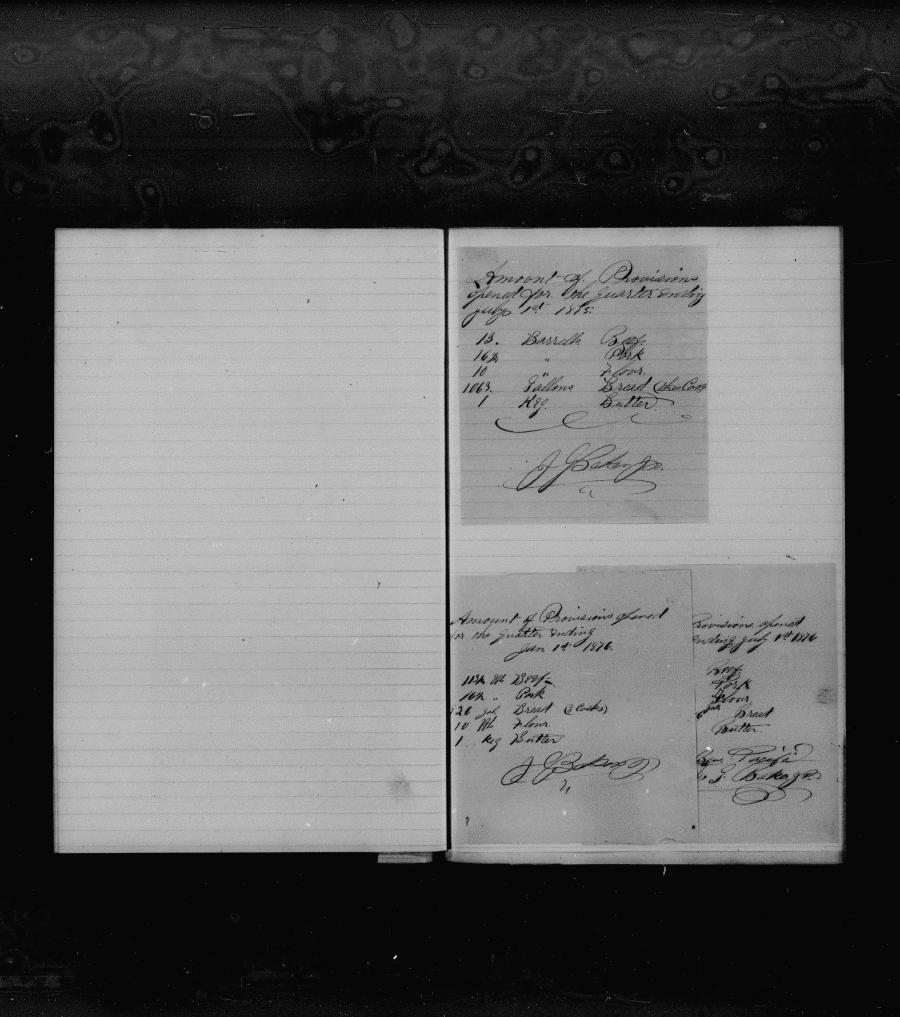 Amount of Provisions
opened for the quarter ending
July 1st 1875.
13. Barrells Beef.
16½ " Pork
10 " Flour.
1063. Gallons Bread
1 Keg. Butter
J G Baker Jr.
Amount of Provisions opened
for the quarter Ending
Jan 1st 1876.
11½ Bbl Beef
16½ " Pork
gal Bread (3 Casks)
10 Bbl Flour.
1 Keg Butter
J G Baker Jr
Provisions opened
ending July 1st 1876
Beef
Pork
Flour
Bread
Butter.
Pacific
G. Baker Jr.